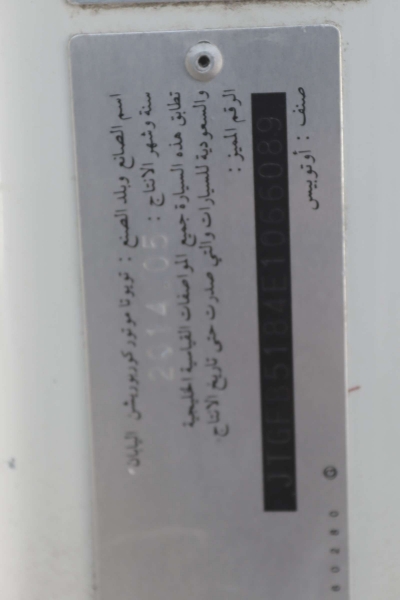 اسم الصانع وبلد الصنع : تويوتا موتور كوربوريشن اليابان
سنة وشهر الانتاج : 2014.05
تطابق هذه السيارة جميع المواصفات القياسية الخليجية
والسعودية للسيارات والتي صدرت حتى تاريخ الانتاج.
الرقم المميز :
JTGFB5184E1056089
صنف : أوتوبيس
80280